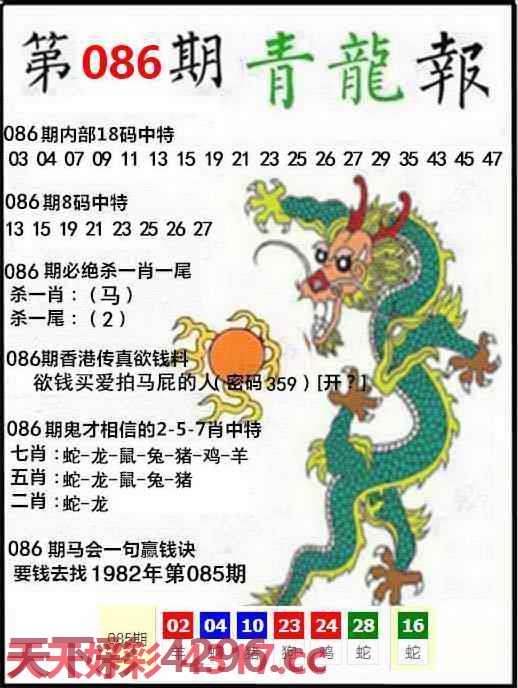 第086期青龍報
086期内部18码中特
03 04 07 09 11 13 15 19 21 23 25 26 27 29 35 43 45 47
086期8码中特
13 15 19 21 23 25 26 27
086期必绝杀一肖一尾
杀一肖：(马)
杀一尾：(2)
086期香港传真欲钱料
欲钱买爱拍马屁的人(密码359)[开?]
086期鬼才相信的2-5-7肖中特
七肖：蛇-龙-鼠-兔-猪-鸡-羊
五肖：蛇-龙-鼠-兔-猪
二肖：蛇-龙
086期马会一句赢钱诀
要钱去找1982年第085期
085期 02 04 10 23 24 28 16
羊 蛇 猪 狗 鸡 蛇 蛇
天下好彩44296.cc